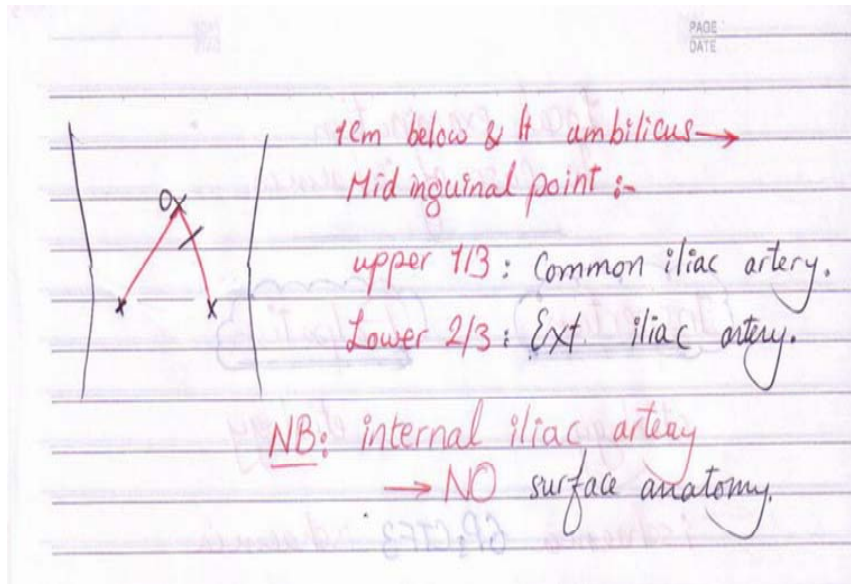 PAGE
DATE
1cm below & lt ambilicus →
Mid inguinal point :-
upper 1/3 : Common iliac artery.
Lower 2/3 : Ext. iliac artery.
NB: internal iliac arteay
→ NO surface anatomy.